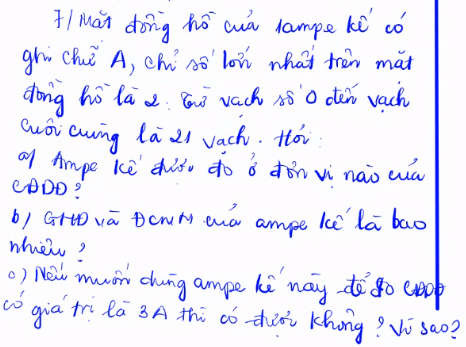 7/ Mặt đồng hồ của 1 ampe kế có
ghi chữ A, chỉ số lớn nhất trên mặt
đồng hồ là 2. Từ vạch số 0 đến vạch
cuối cùng là 21 vạch. Hỏi:
a) Ampe kế được đo ở đơn vị nào của
CĐDĐ?
b) GHĐ và ĐCNN của ampe kế là bao
nhiêu?
c) Nếu muốn dùng ampe kế này để đo CĐDĐ
có giá trị là 3A thì có được không? Vì sao?